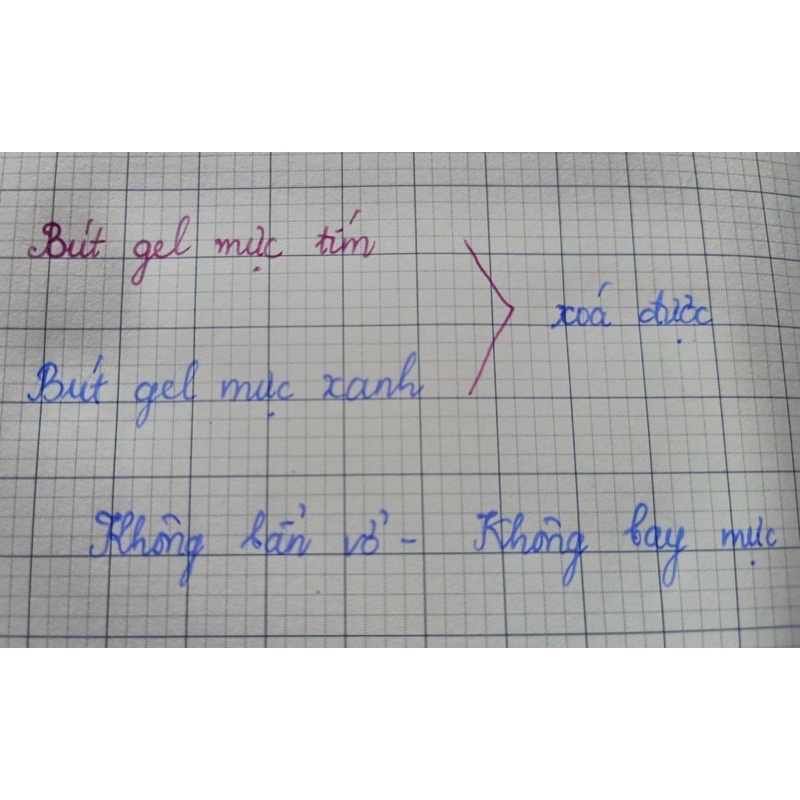 Bút gel mực tím
xoá được
Bút gel mực xanh
Không bẩn vở - Không bay mực